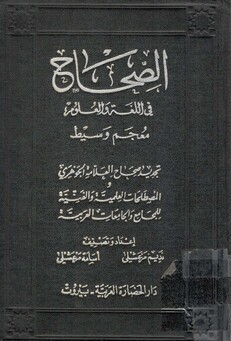 الصِّحَاح
في اللغة والعلوم
معجم وسيط
تجديد صحاح العلامة الجوهري
و
المصطلحات العلمية والفنية
للمجامع والجامعات العربية
إعداد وتصنيف
نديم مرعشلي أسامة مرعشلي
دار الحضارة العربية - بيروت